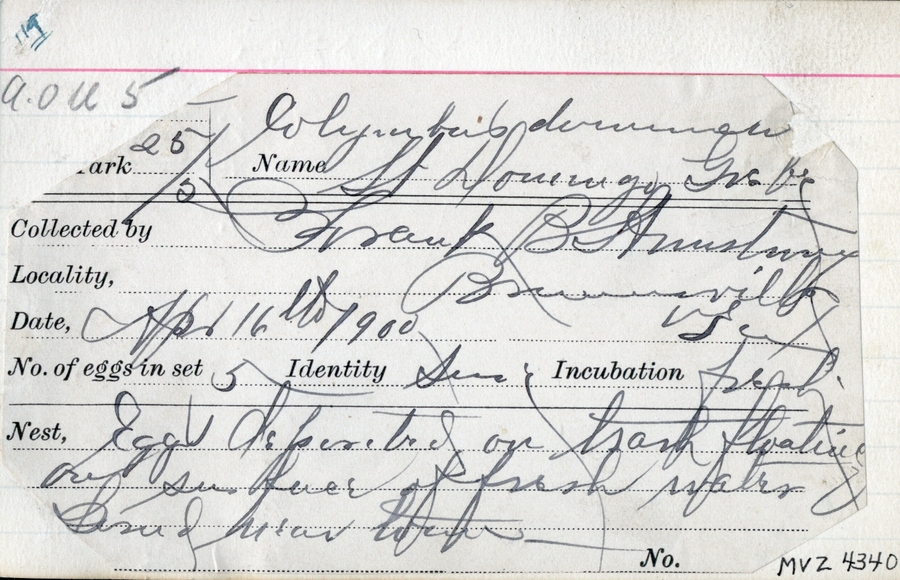 A.O.U 5
Colymbus dominicus
ark 25/5 Name St Domingo Grebe
Collected by Frank B Armstrong
Locality, Brownsville
Date, Apr 16th 1900 Tex
No. of eggs in set 5 Identity Sure Incubation fresh.
Nest, Eggs deposited on trash floating
on surface of fresh water
pond near town
No. MVZ 4340